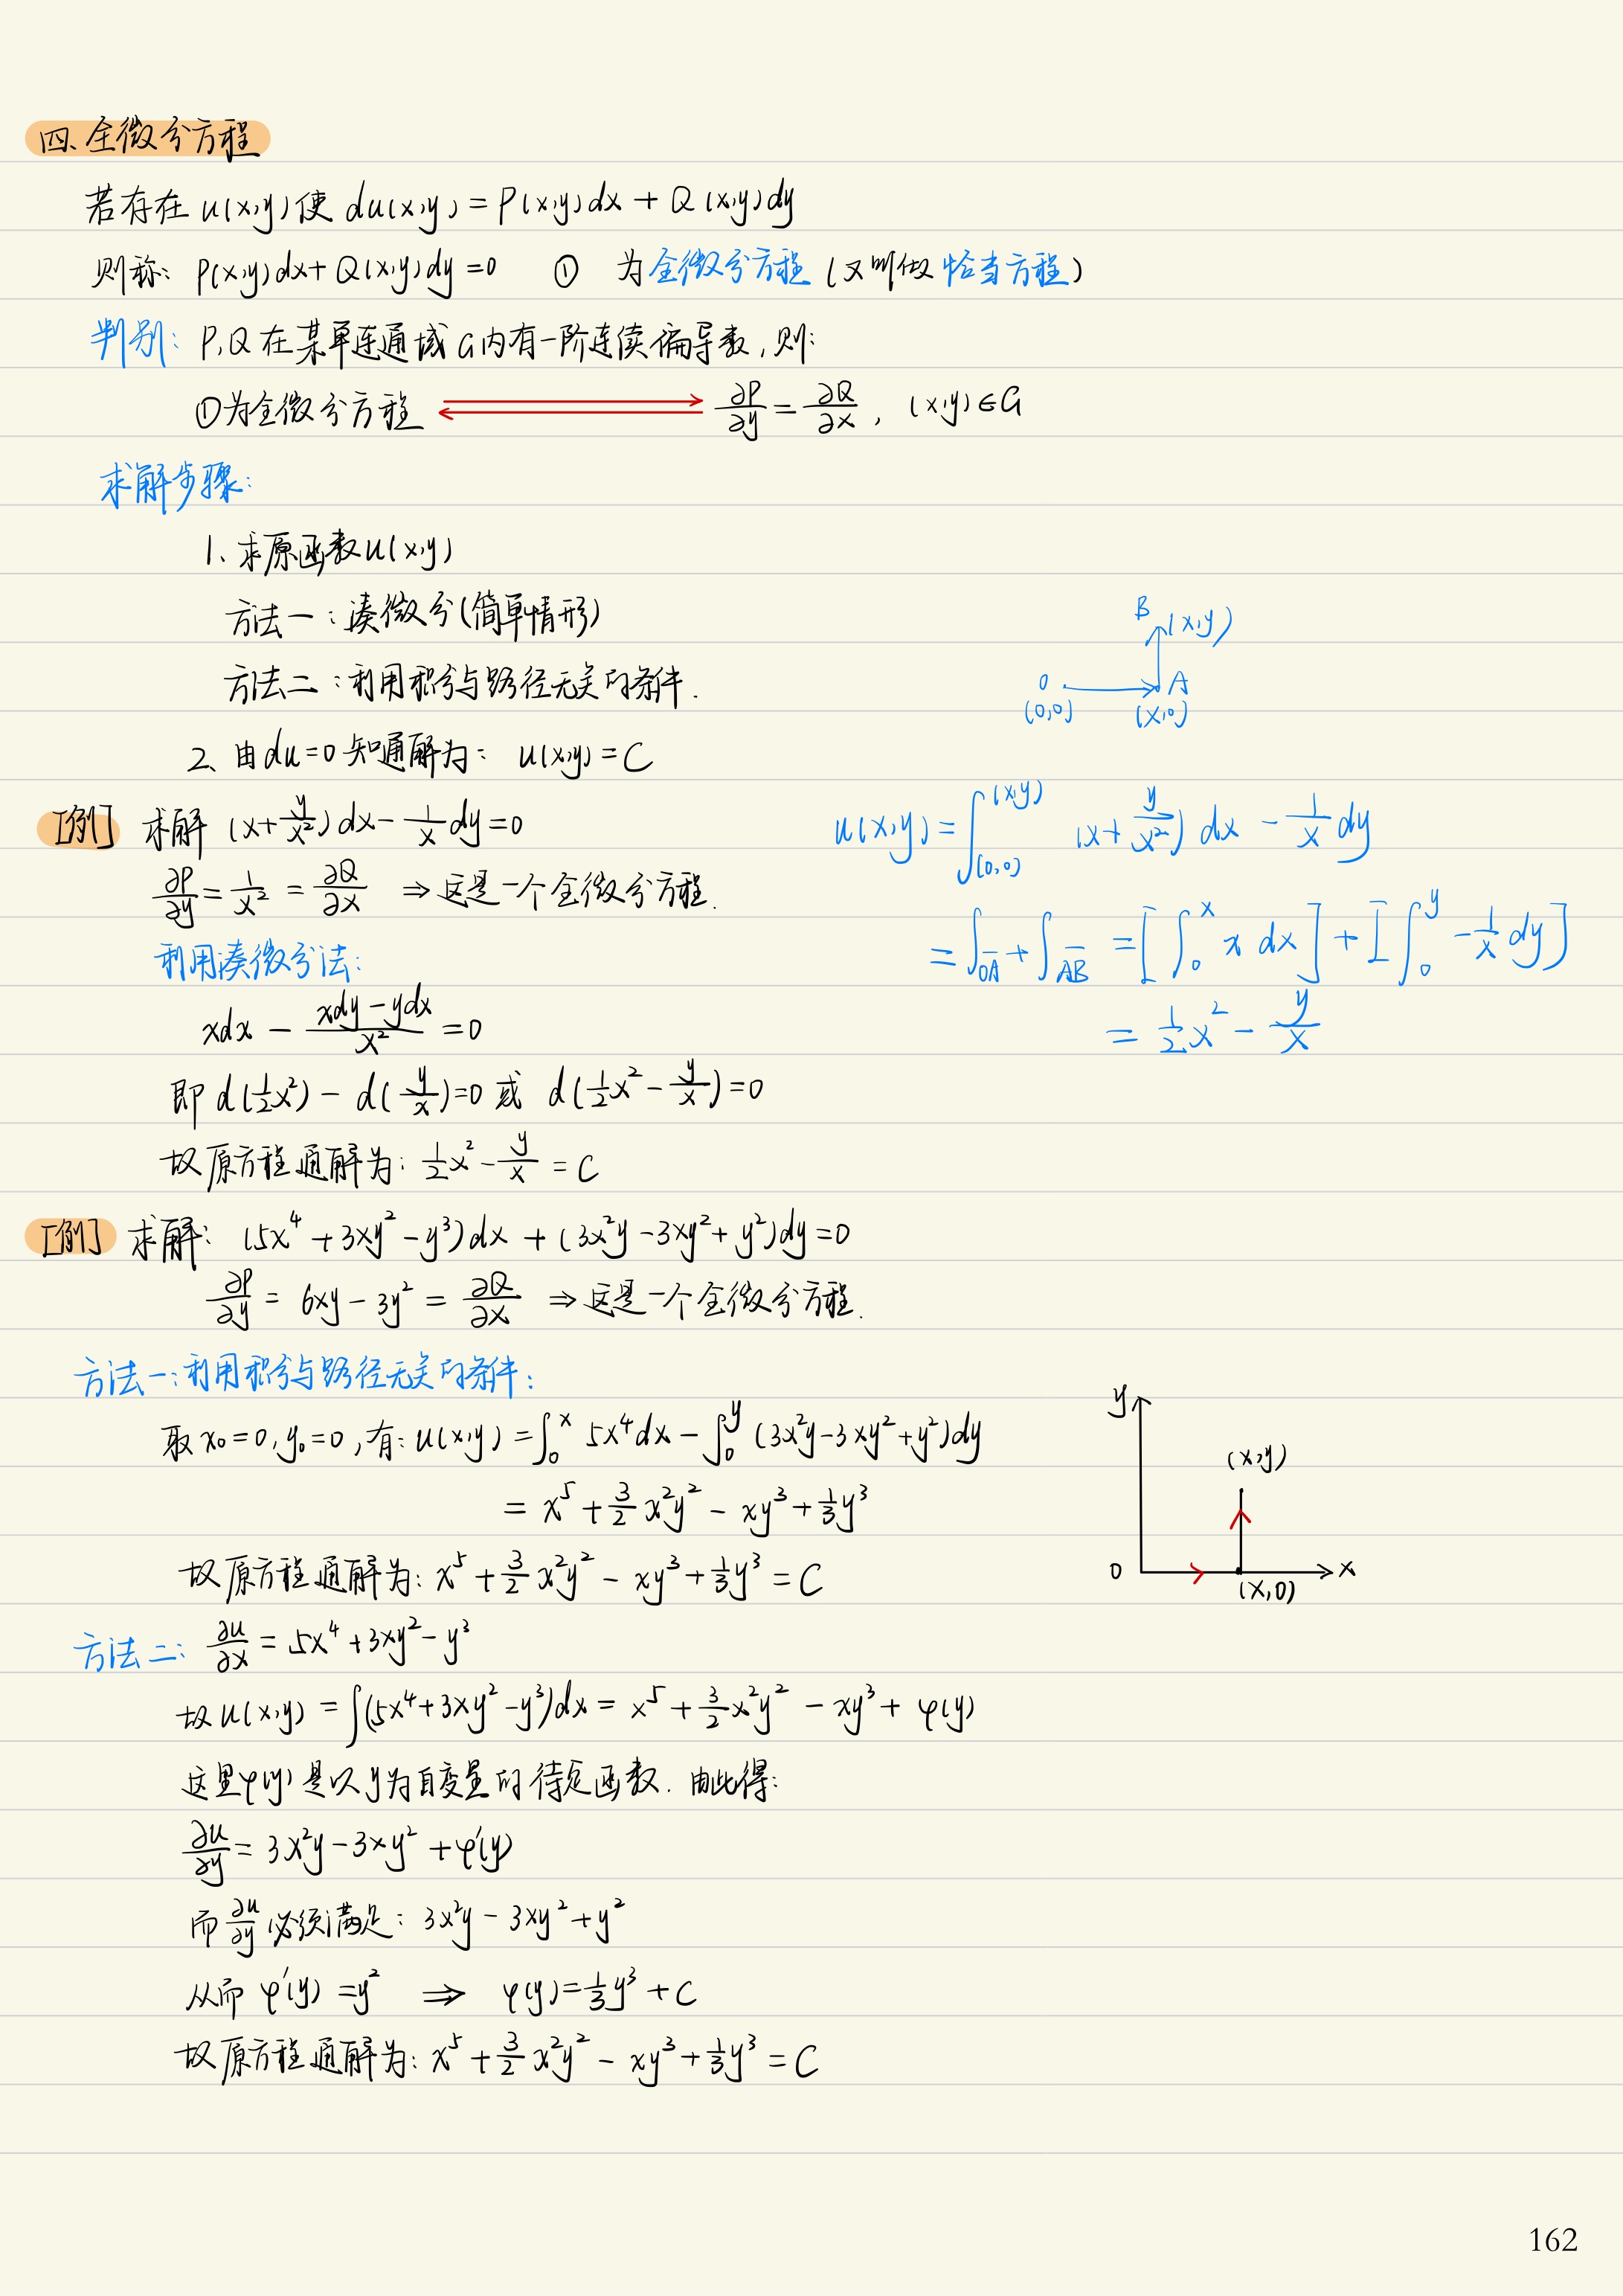 四、全微分方程
若存在 u(x,y) 使 du(x,y) = P(x,y)dx + Q(x,y)dy
则称: P(x,y)dx + Q(x,y)dy = 0 ① 为全微分方程 (又叫做 恰当方程)
判别: P,Q 在某单连通域 G 内有一阶连续偏导数, 则:
①为全微分方程 ⇄ ∂P/∂y = ∂Q/∂x , (x,y)∈G
求解步骤:
1、求原函数 u(x,y)
方法一:凑微分(简单情形)
方法二:利用积分与路径无关的条件.
B (x,y)
0 A
(0,0) (x,0)
2、由 du=0 知通解为: u(x,y) = C
[例] 求解 (x+y/x²)dx - 1/x dy = 0
∂P/∂y = 1/x² = ∂Q/∂x ⇒ 这是一个全微分方程.
利用凑微分法:
xdx - (xdy-ydx)/x² = 0
即 d(½x²) - d(y/x) = 0 或 d(½x² - y/x) = 0
故原方程通解为: ½x² - y/x = C
u(x,y) = ∫_(0,0)^(x,y) (x+y/x²) dx - 1/x dy
= ∫_OA + ∫_AB = [∫_0^x x dx] + [∫_0^y -1/x dy]
= ½x² - y/x
[例] 求解: (5x⁴+3xy²-y³)dx + (3x²y-3xy²+y²)dy=0
∂P/∂y = 6xy - 3y² = ∂Q/∂x ⇒ 这是一个全微分方程.
方法一:利用积分与路径无关的条件:
取 x₀=0, y₀=0, 有: u(x,y) = ∫_0^x 5x⁴dx - ∫_0^y (3x²y-3xy²+y²)dy
= x⁵ + 3/2 x²y² - xy³ + ⅓y³
故原方程通解为: x⁵ + 3/2 x²y² - xy³ + ⅓y³ = C
y
(x,y)
0 x
(x,0)
方法二: ∂u/∂x = 5x⁴+3xy²-y³
故 u(x,y) = ∫(5x⁴+3xy²-y³)dx = x⁵ + 3/2 x²y² - xy³ + φ(y)
这里φ(y) 是以 y 为自变量的待定函数. 由此得:
∂u/∂y = 3x²y - 3xy² + φ'(y)
而 ∂u/∂y 必须满足: 3x²y - 3xy² + y²
从而 φ'(y) = y² ⇒ φ(y) = ⅓y³ + C
故原方程通解为: x⁵ + 3/2 x²y² - xy³ + ⅓y³ = C
162